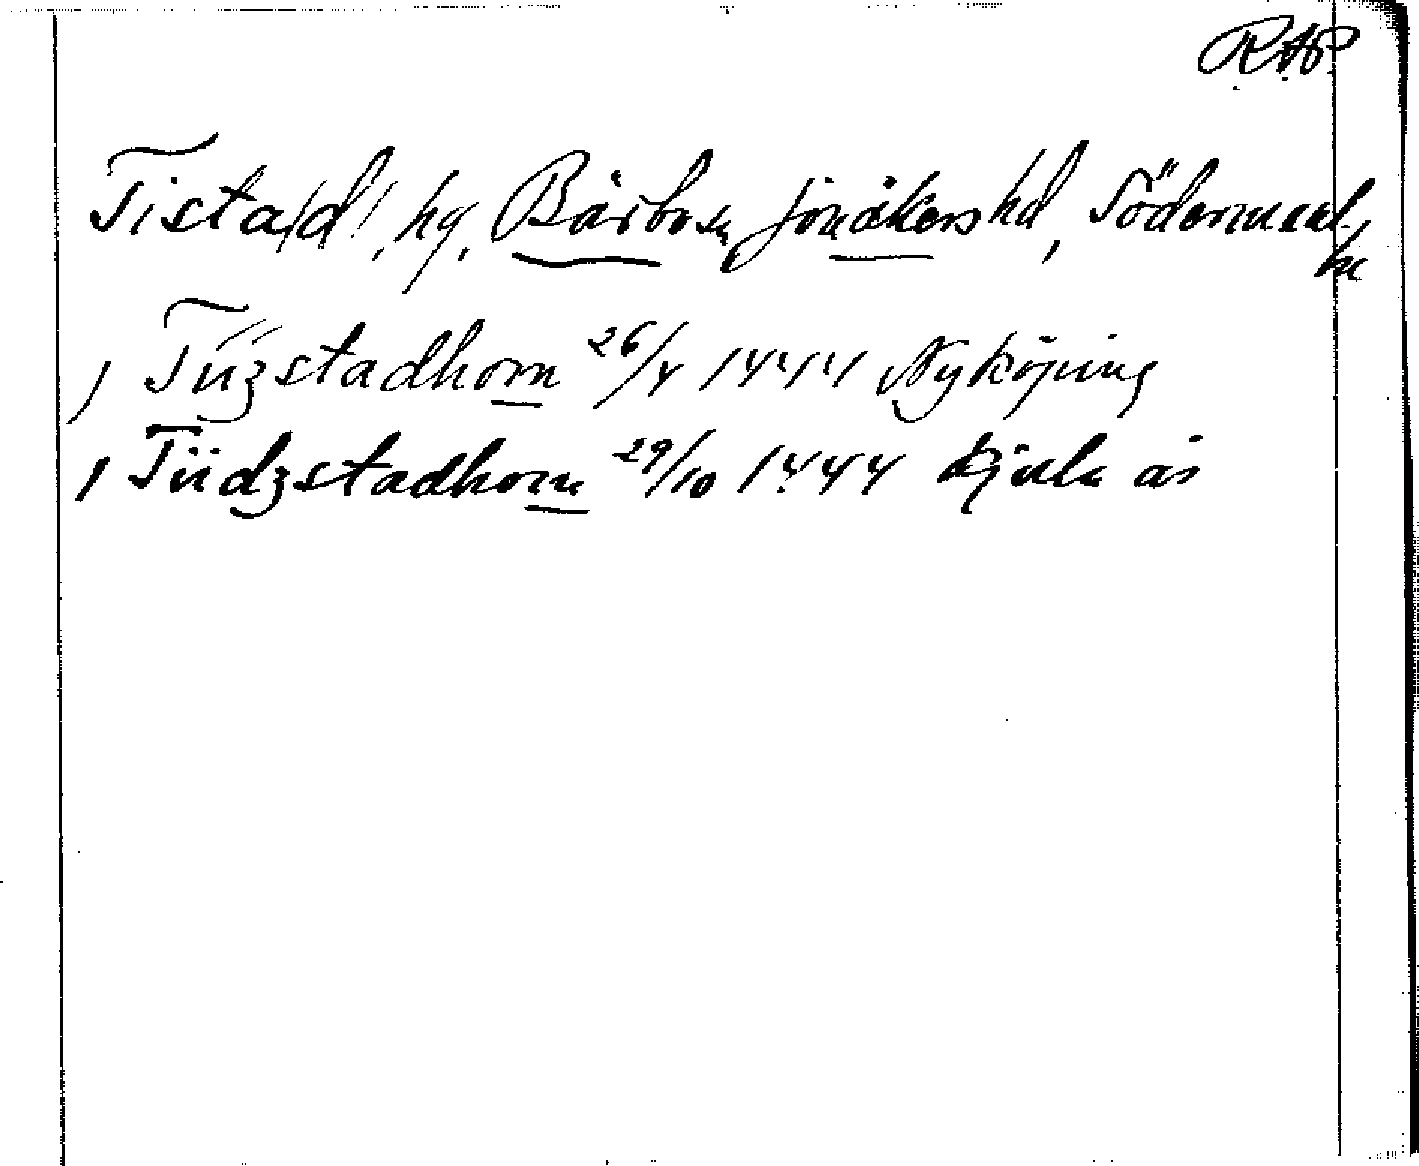 R.A.P.
Tista/d/, hg, Bärbo sn, Jönåkers hd, Södermanl.
, Tiizstadhom 26/4 1444 Nyköping
, Tiidzstadhom 29/10 1444 Kjula ås